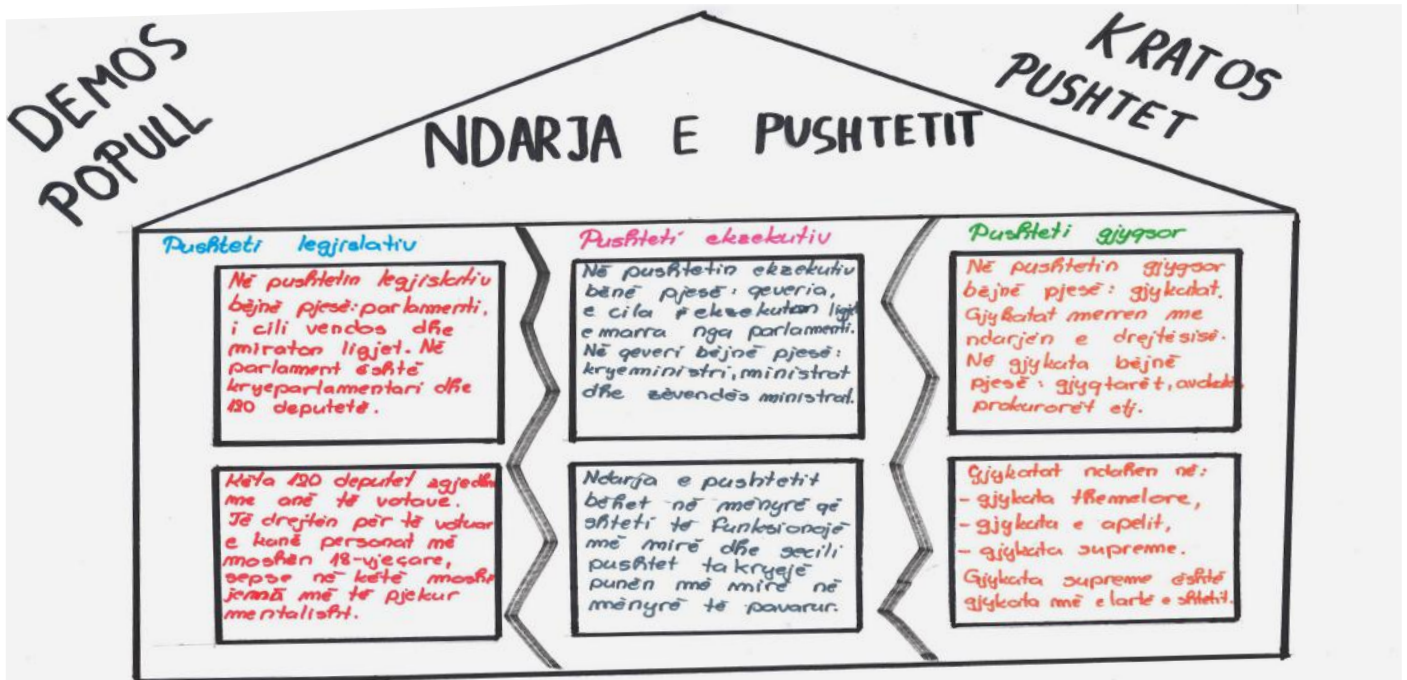 DEMOS
POPULL
KRATOS
PUSHTET
NDARJA E PUSHTETIT
Pushteti legjislativ
Në pushtetin legjislativ
bëjnë pjesë: parlamenti,
i cili vendos dhe
miraton ligjet. Në
parlament është
kryeparlamentari dhe
120 deputetë.
Këta 120 deputet zgjedhe
me anë të votave.
Të drejtën për të votuar
e kanë personat më
moshën 18-vjeçare,
sepse në këtë moshë
jemnã më të pjekur
mentalisht.
Pushteti ekzekutiv
Në pushtetin ekzekutiv
bënë pjesë: qeveria,
e cila ekzekuton ligjet
e marra nga parlamenti.
Në qeveri bëjnë pjesë:
kryeministri, ministrat
dhe zëvendës ministrat.
Ndarja e pushtetit
bëhet në mënyrë që
shteti të funksionojë
më mirë dhe secili
pushtet ta kryejë
punën më mirë në
mënyrë të pavarur.
Pushteti gjyqsor
Në pushtetin gjyqsor
bëjnë pjesë: gjykatat.
Gjykatat merren me
ndarjën e drejtësisë.
Në gjykata bëjnë
pjesë: gjyqtarët, avokatë,
prokurorët etj.
Gjykatat ndahen në:
- gjykata themelore,
- gjykata e apelit,
- gjykata supreme.
Gjykata supreme është
gjykata më e lartë e shtetit.